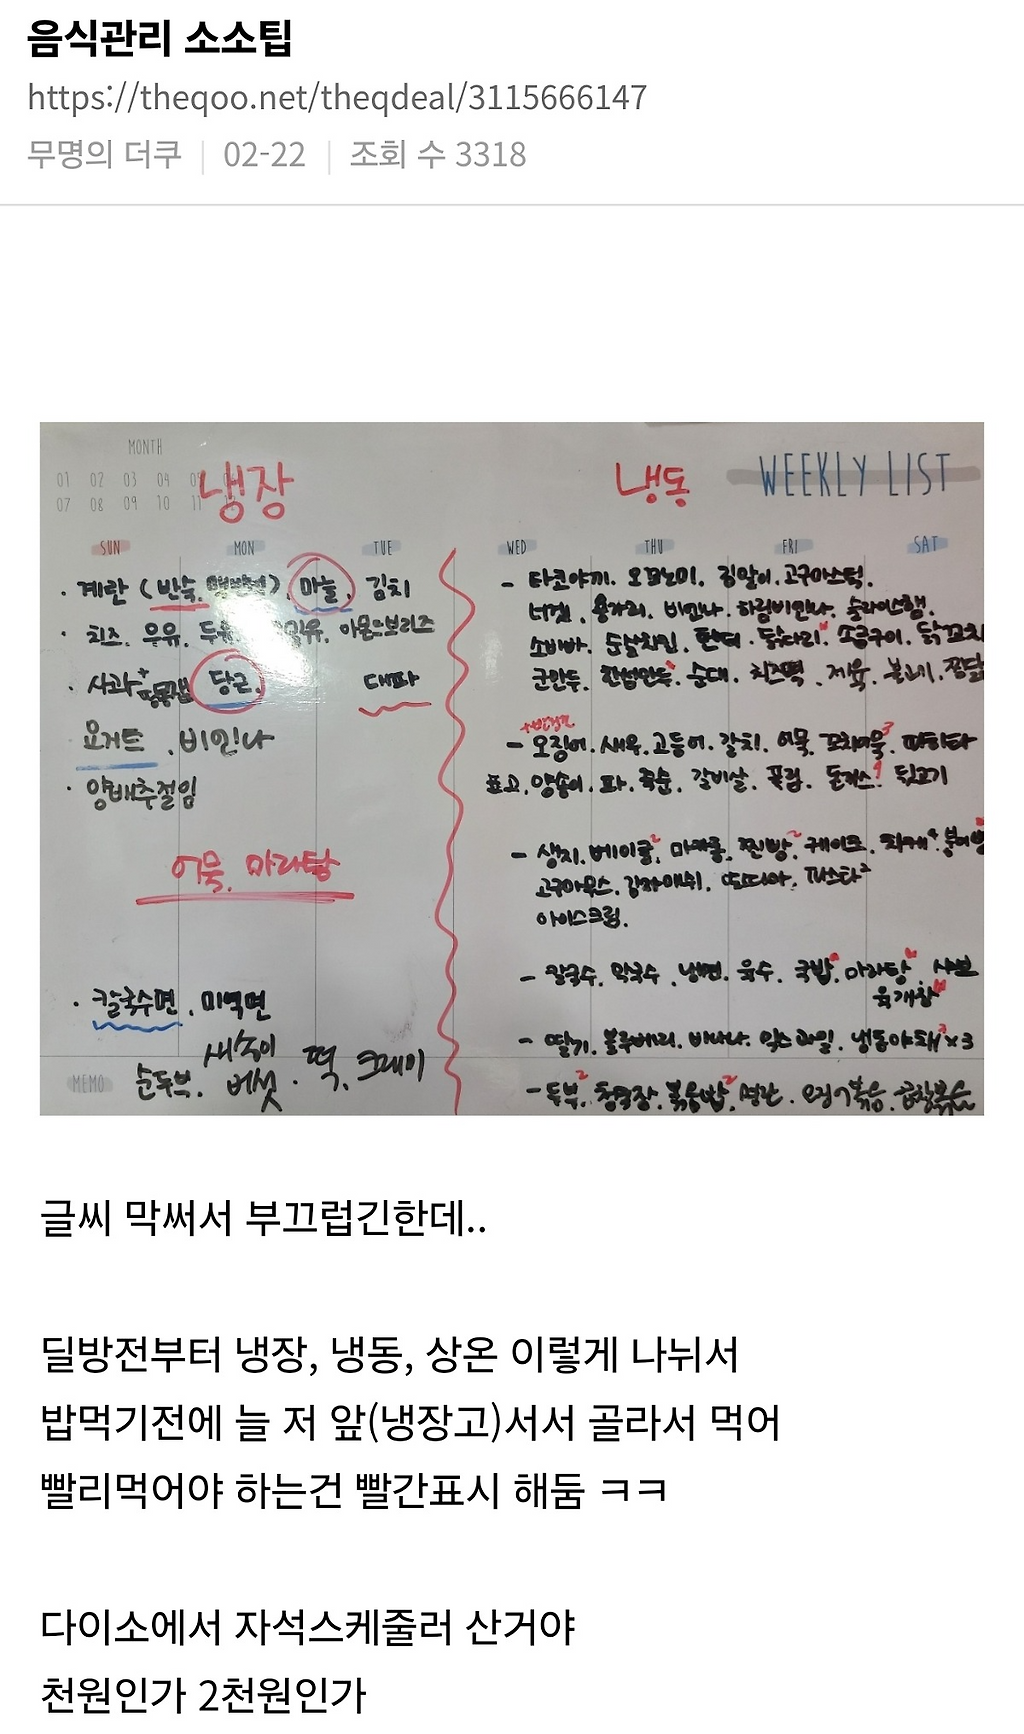 음식관리 소소팁
https://theqoo.net/theqdeal/3115666147
무명의 더쿠 | 02-22 | 조회 수 3318
MONTH
01 02 03 04
07 08 09 10 11
냉장
냉동
WEEKLY LIST
SUN MON TUE WED THU FRI SAT
· 계란 (반숙, 마늘, 김치
· 치즈, 우유, 아몬드브리즈
· 사과 당근, 대파
요거트, 비엔나
· 양배추절임
어묵, 마라탕
· 칼국수면, 미역면
MEMO 순두부, 새송이버섯, 떡, 크래미
- 타코야끼, 오꼬노미, 김말이, 고구마스틱,
너겟, 용가리, 비엔나, 하림비엔나, 슬라이스햄,
소바바, 순살치킨, 닭꼬치
군만두, 순대, 치즈떡, 제육, 불고기,
- 오징어, 새우, 고등어, 갈치, 어묵, 꼬치어묵3,
표고, 양송이, 파, 죽순, 갈비살, 돈까스! 뒷고기
- 생지, 베이글2, 마카롱, 찐빵2, 케이크,
고구마무스, 감자매쉬, 또띠아, 파스타2
아이스크림,
- 칼국수, 막국수, 냉면, 육수, 국밥, 마라탕, 샤브
육개장
- 딸기, 블루베리, 바나나, 믹스과일, 냉동야채 x3
- 두부2, 청국장, 볶음밥2, 명란, 오징어볶음, 곱창볶음
글씨 막써서 부끄럽긴한데..
딜방전부터 냉장, 냉동, 상온 이렇게 나눠서
밥먹기전에 늘 저 앞(냉장고)서서 골라서 먹어
빨리먹어야 하는건 빨간표시 해둠 ㅋㅋ
다이소에서 자석스케줄러 산거야
천원인가 2천원인가